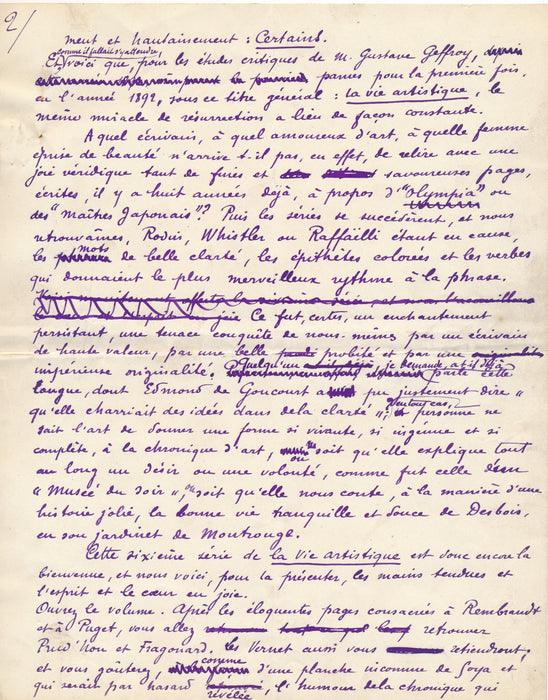 2/
ment et hautainement : Certains.
comme il fallait s'y attendre,
Et, voici que, pour les études critiques de M. Gustave Geffroy, depuis
parues pour la première fois,
en l'année 1892, sous ce titre général : la vie artistique, le
même miracle de résurrection a lieu de façon constante.
A quel écrivain, à quel amoureux d'art, à quelle femme
éprise de beauté n'arrive-t-il pas, en effet, de relire avec une
joie véridique tant de fines et savoureuses pages,
écrites, il y a huit années déjà, à propos d'"Olympia" ou
des "Maîtres Japonais"? Puis les séries se succédèrent, et nous
retrouvâmes, Rodin, Whistler ou Raffaëlli étant en cause,
les mots de belle clarté, les épithètes colorées et les verbes
qui donnaient le plus merveilleux rythme à la phrase.
joie Ce fut, certes, un enchantement
persistant, une tenace conquête de nous-mêmes par un écrivain
de haute valeur, par une belle probité et par une
impérieuse originalité. Quelqu'un, je demande, a-t-il déjà parlé cette
langue, dont Edmond de Goncourt a pu justement dire "
qu'elle charriait des idées dans de la clarté"; en tout cas, personne ne
sait l'art de donner une forme si vivante, si ingénue et si
complète, à la chronique d'art, ou soit qu'elle explique tout
au long un désir ou une volonté, comme fut celle d'un
"Musée du soir", ou soit qu'elle nous conte, à la manière d'une
histoire jolie, la bonne vie tranquille et douce de Desbois,
en son jardinet de Montrouge.
Cette sixième série de la vie artistique est donc encore la
bienvenue, et nous voici, pour la présenter, les mains tendues et
l'esprit et le cœur en joie.
Ouvrez le volume. Après les éloquentes pages consacrées à Rembrandt
et à Puget, vous allez retrouver
Prud'hon et Fragonard, les Vernet aussi vous retiendront,
et vous goûterez, comme d'une planche inconnue de Goya et
qui serait par hasard révélée, l'humour de la chronique qui